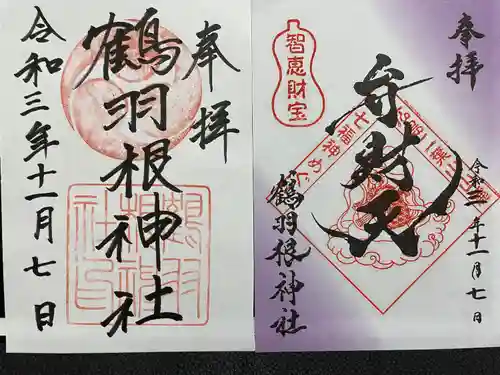 奉拝
鶴羽根神社
令和三年十一月七日
鶴羽根神社印
奉拝
智恵財宝
弁財天
七福神めぐ
鶴羽根神社
令和三年十一月七日